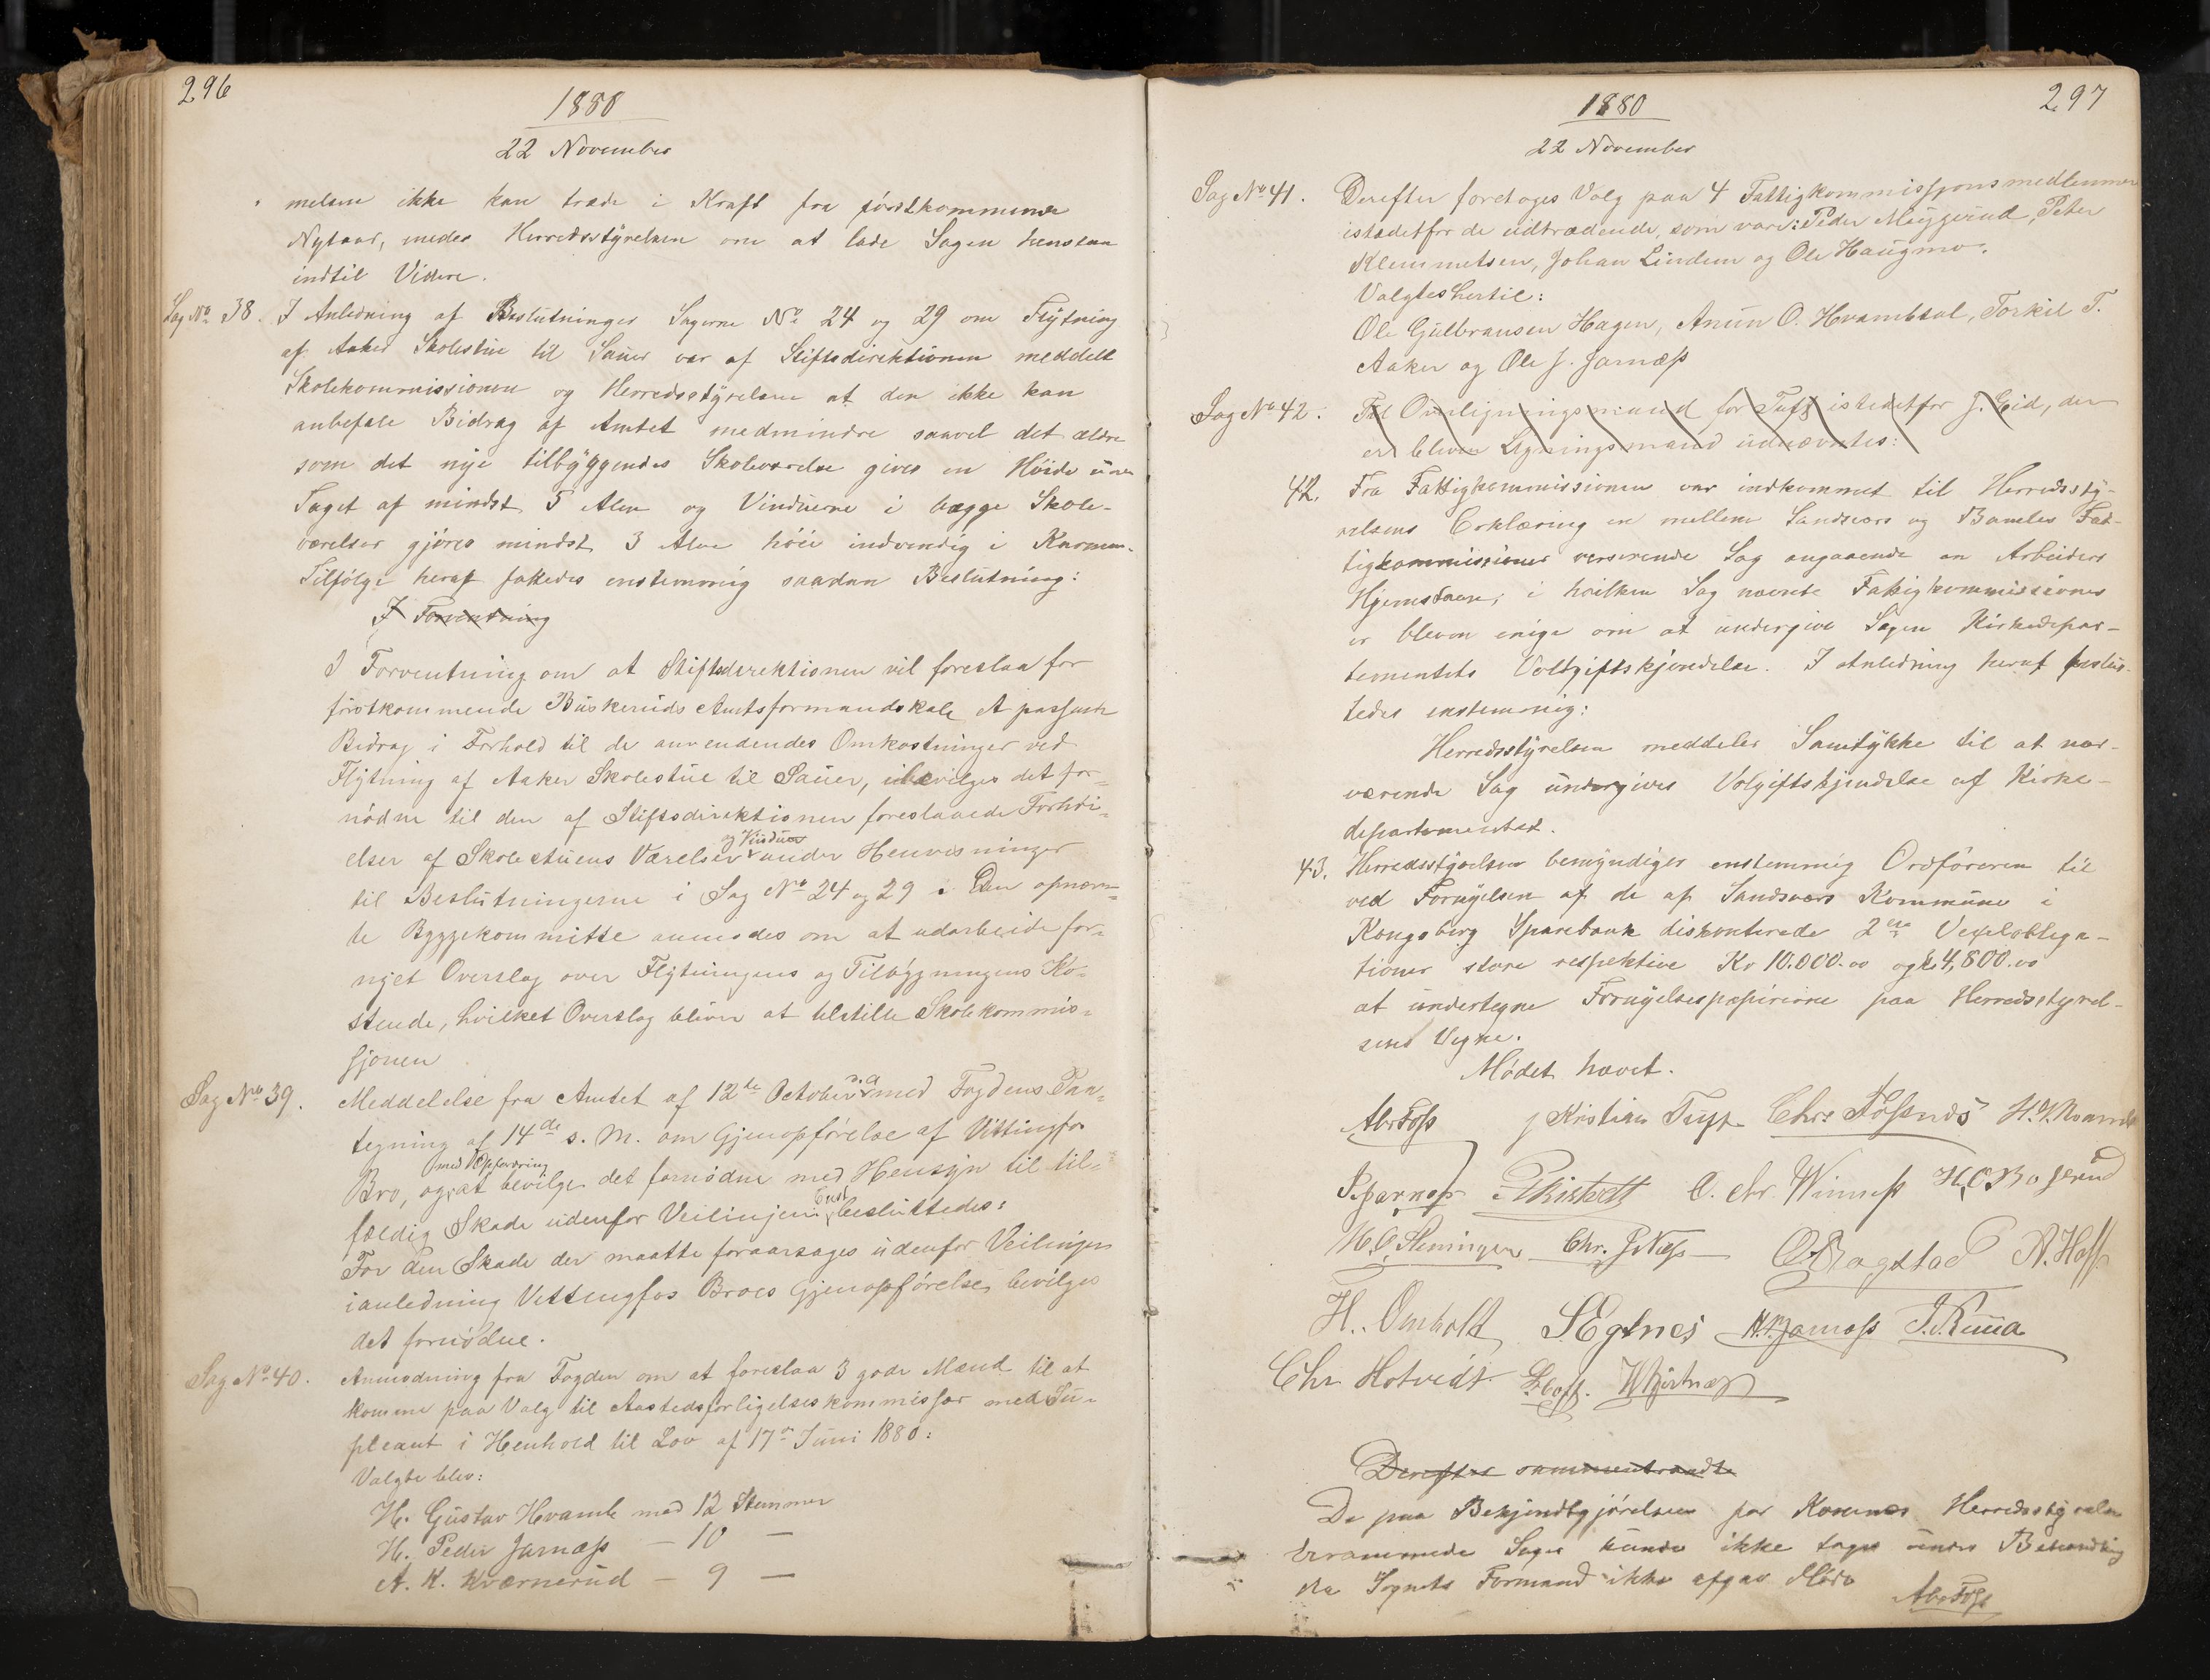 296
1880
22 November
melsen ikke kan træde i Kraft fra förstkommende
Nytaar, enedes Herredsstyrelsen om at lade Sagen henstaa
indtil Videre.
Sag No 38. I Anledning af Beslutninger Sagerne No 24 og 29 om Flytning
af Aaker Skolestue til Sauer var af Stiftsdirektionen meddelt
Skolekommissionen og Herredsstyrelsen at den ikke kan
anbefale Bidrag af Amtet medmindre saavel det ældre
som det nye tilbyggendes Skoleværelse gives en Höide under
Taget af mindst 5 Alen og Vinduerne i begge Skole-
værelser gjöres mindst 3 Alen höie indvendig i Karmen.
Tilfölge heraf fattedes enstemmig saadan Beslutning:
I Forventning
I Forventning om at Stiftsdirektionen vil foreslaa for
förstkommende Buskeruds Amtsformandskab et passende
Bidrag i Forhold til de anvendendes Omkostninger ved
Flytning af Aaker Skolestue til Sauer, bevilges det for-
nödne til den af Stiftsdirektionen foreslaaede Forhöi-
elser af Skolestuens Værelser og Vinduer under Henvisninger
til Beslutningerne i Sag No 24 og 29. Den opnævn-
te Byggekommitte anmodes om at udarbeide for-
nyet Overslag over Flytningens og Tilbygningens Ko-
stende, hvilket Overslag bliver at tilstille Skolekommis-
sjonen
Sag No 39. Meddelelse fra Amtet af 12te October d. A. med Fogdens Paa-
tegning af 14de s. M. om Gjenopförelse af Vittingfos
Bro, og med Opfordring at bevilge det fornödne med Hensyn til til-
fældig Skade udenfor Veilinjen besluttedes:
For den Skade der maatte foraarsages udenfor Veilinjen
ianledning Vittingfos Broes Gjenopförelse, bevilges
det fornödne.
Sag No 40. Anmodning fra Fogden om at foreslaa 3 gode Mænd til at
komme paa Valg til Aastedsforligelseskommissær med Su-
pleant i Henhold til Lov af 17de Juni 1880:
Valgte blev:
H. Gustav Hvamb med 12 Stemmer
H. Peder Jarnæss — 10 —
A. K. Kværnerud — 9 —
297
1880
22 November
Sag No 41. Derefter foretoges Valg paa 4 Fattigkommissjonsmedlemmer
istedetfor de udtrædende, som vare: Peder Muggerud, Peter
Klemmetsen, Johan Lindem og Ole Haugmo.
Valgtes hertil:
Ole Gulbransen Hagen, Anun O. Hvambsal, Torkil T.
Aaker og Ole J. Jarnæss
Sag No 42. Til Omligningsmand for Tufs istedetfor J. Eid, der
er bleven Ligningsmand udnævntes:
42. Fra Fattigkommissionen var indkommet til Herredssty-
relsens Erklæring en mellem Sandsværs og Bambles Fat-
tigkommissioner verserende Sag angaaende en Arbeiders
Hjemstavn, i hvilken Sag nævnte Fattigkommissioner
er bleven enige om at undergive Sagen Kirkedepar-
tementets Voldgiftskjendelse. I Anledning heraf beslut-
tedes enstemmig:
Herredsstyrelsen meddeler Samtykke til at nær-
værende Sag undergives Volgiftskjendelse af Kirke-
departementet.
43. Herredsstyrelsen bemyndiger enstemmig Ordföreren til
ved Fornyelsen af de af Sandsværs Kommune i
Kongsberg Sparebank diskonterede 2de Vexelobliga-
tioner store respektive Kr 10.000.00 og Kr 4,800.00
at undertegne Fornyelsespapirerne paa Herredsstyrel-
sens Vegne.
Mödet hævet.
Abr Foss J Kristian Tufs Chr. Fossnæs
O. Chr. Winness
Chr. J Næss O Bagstad A. Hoff
H. Omholt S Eglnes J. Ruua
Chr. Hotvedt
Derefter sammentraadte
De paa Bekjendtgjörelsen for Herredsstyrelsen
berammede Sager kunde ikke tages under Behandling
da Sognets Formand ikke afgav Möde
Abr Foss